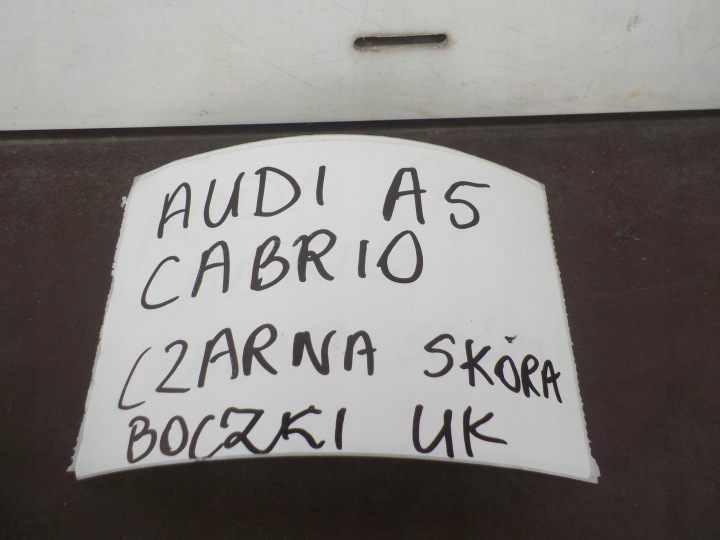 AUDI A5
CABRIO
CZARNA SKÓRA
BOCZKI UK